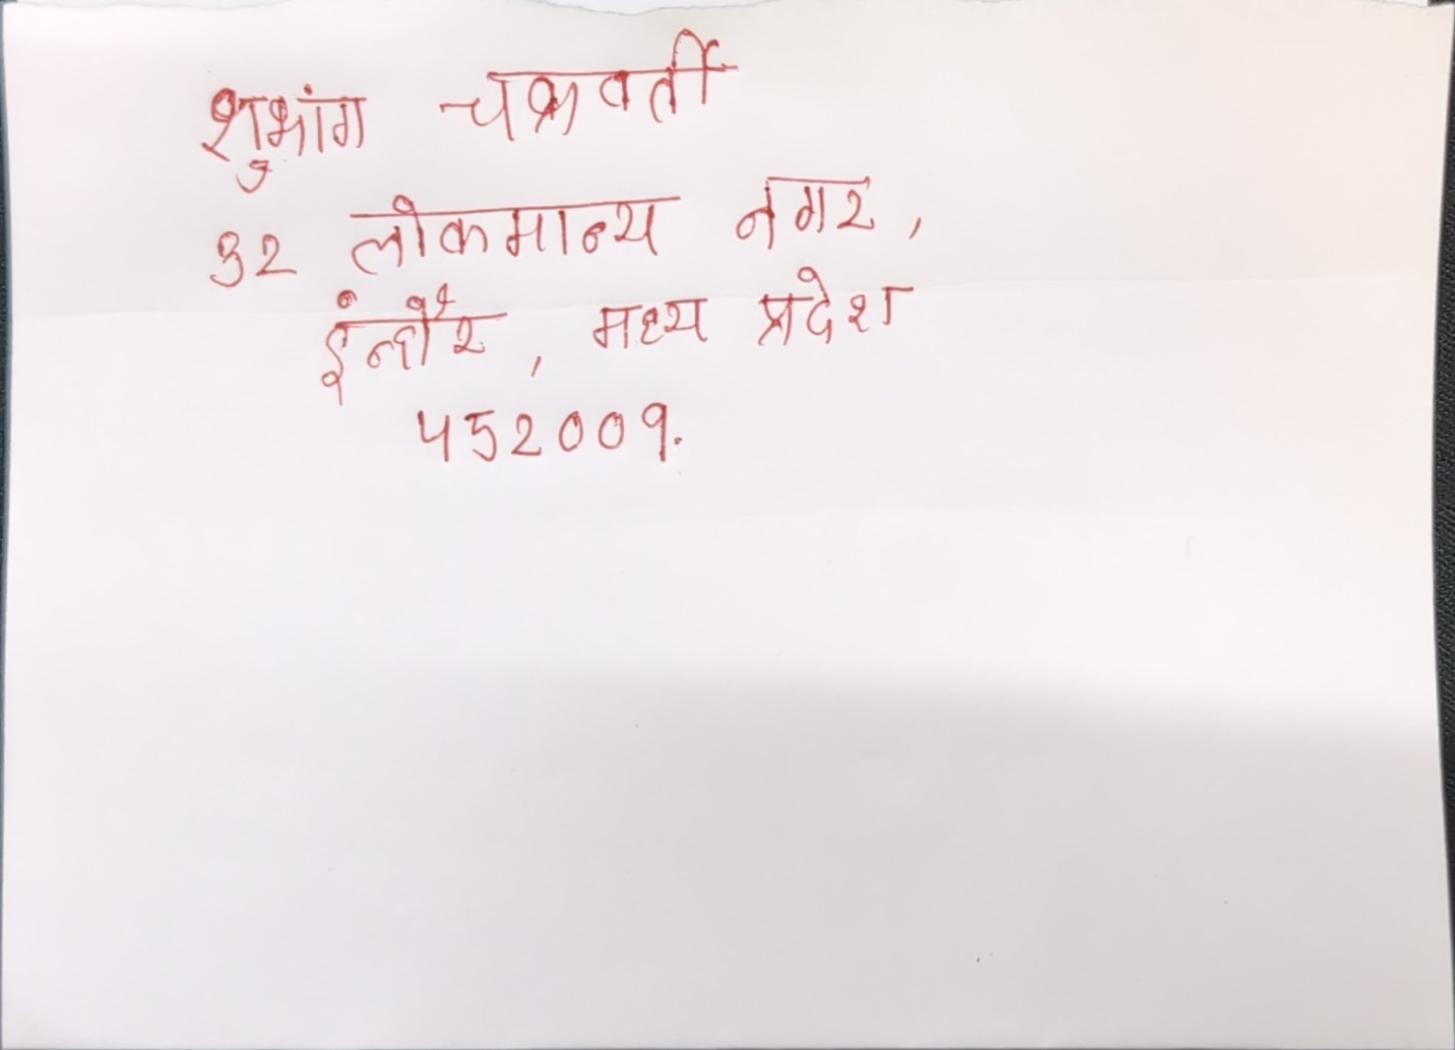 शुभांग चक्रवर्ती
32 लोकमान्य नगर,
इंन्दौर, मध्य प्रदेश
452009.